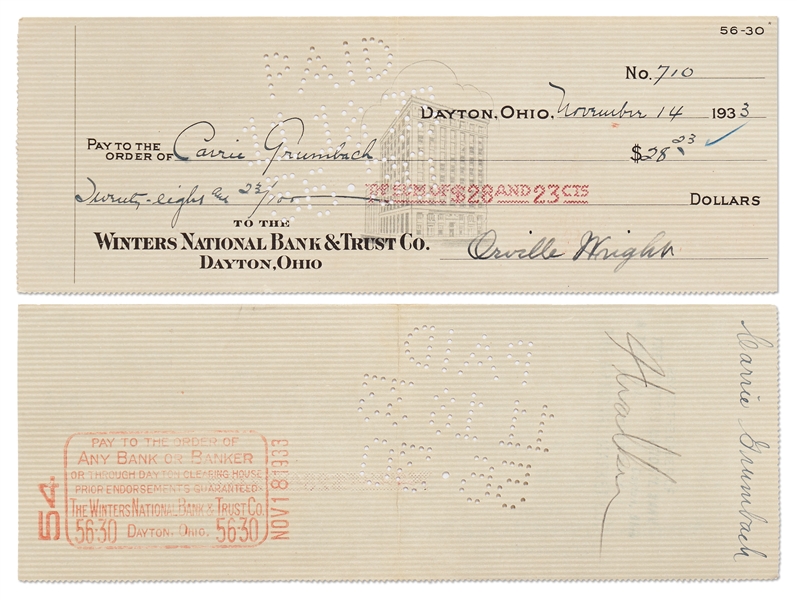 56-30
No. 710
DAYTON, OHIO, November 14 1933
PAY TO THE ORDER OF Carrie Grumbach $28 23
Twenty-eight and 23/100 THE SUM OF $28 AND 23 CTS DOLLARS
TO THE
WINTERS NATIONAL BANK & TRUST CO.
DAYTON, OHIO
Orville Wright
PAID
Carrie Grumbach
PAID
54
PAY TO THE ORDER OF
ANY BANK OR BANKER
OR THROUGH DAYTON CLEARING HOUSE
PRIOR ENDORSEMENTS GUARANTEED
THE WINTERS NATIONAL BANK & TRUST CO.
56-30 DAYTON, OHIO. 56-30
NOV 18 1933